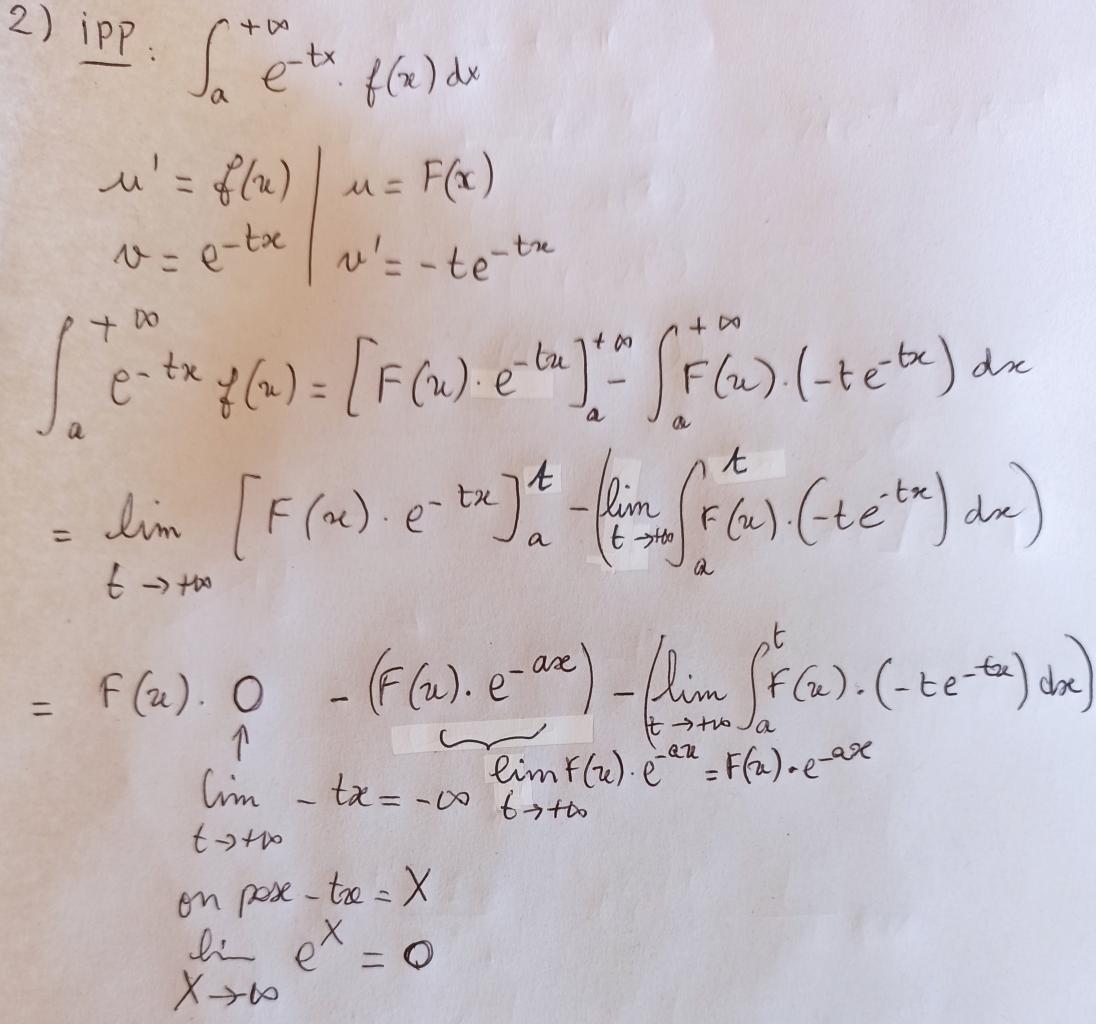 2) ipp : ∫_a^{+∞} e^{-tx} . f(x) dx
u' = f(x) | u = F(x)
v = e^{-tx} | v' = -te^{-tx}
∫_a^{+∞} e^{-tx} f(x) = [F(x) . e^{-tx}]_a^{+∞} - ∫_a^{+∞} F(x) . (-te^{-tx}) dx
= lim_{t→+∞} [F(x) . e^{-tx}]_a^t - (lim_{t→+∞} ∫_a^t F(x) . (-te^{-tx}) dx)
= F(x) . 0 - (F(x) . e^{-ax}) - (lim_{t→+∞} ∫_a^t F(x) . (-te^{-tx}) dx)
↑
lim_{t→+∞} -tx = -∞ lim_{t→+∞} F(x) . e^{-ax} = F(x) . e^{-ax}
on pose -tx = X
lim_{X→∞} e^X = 0